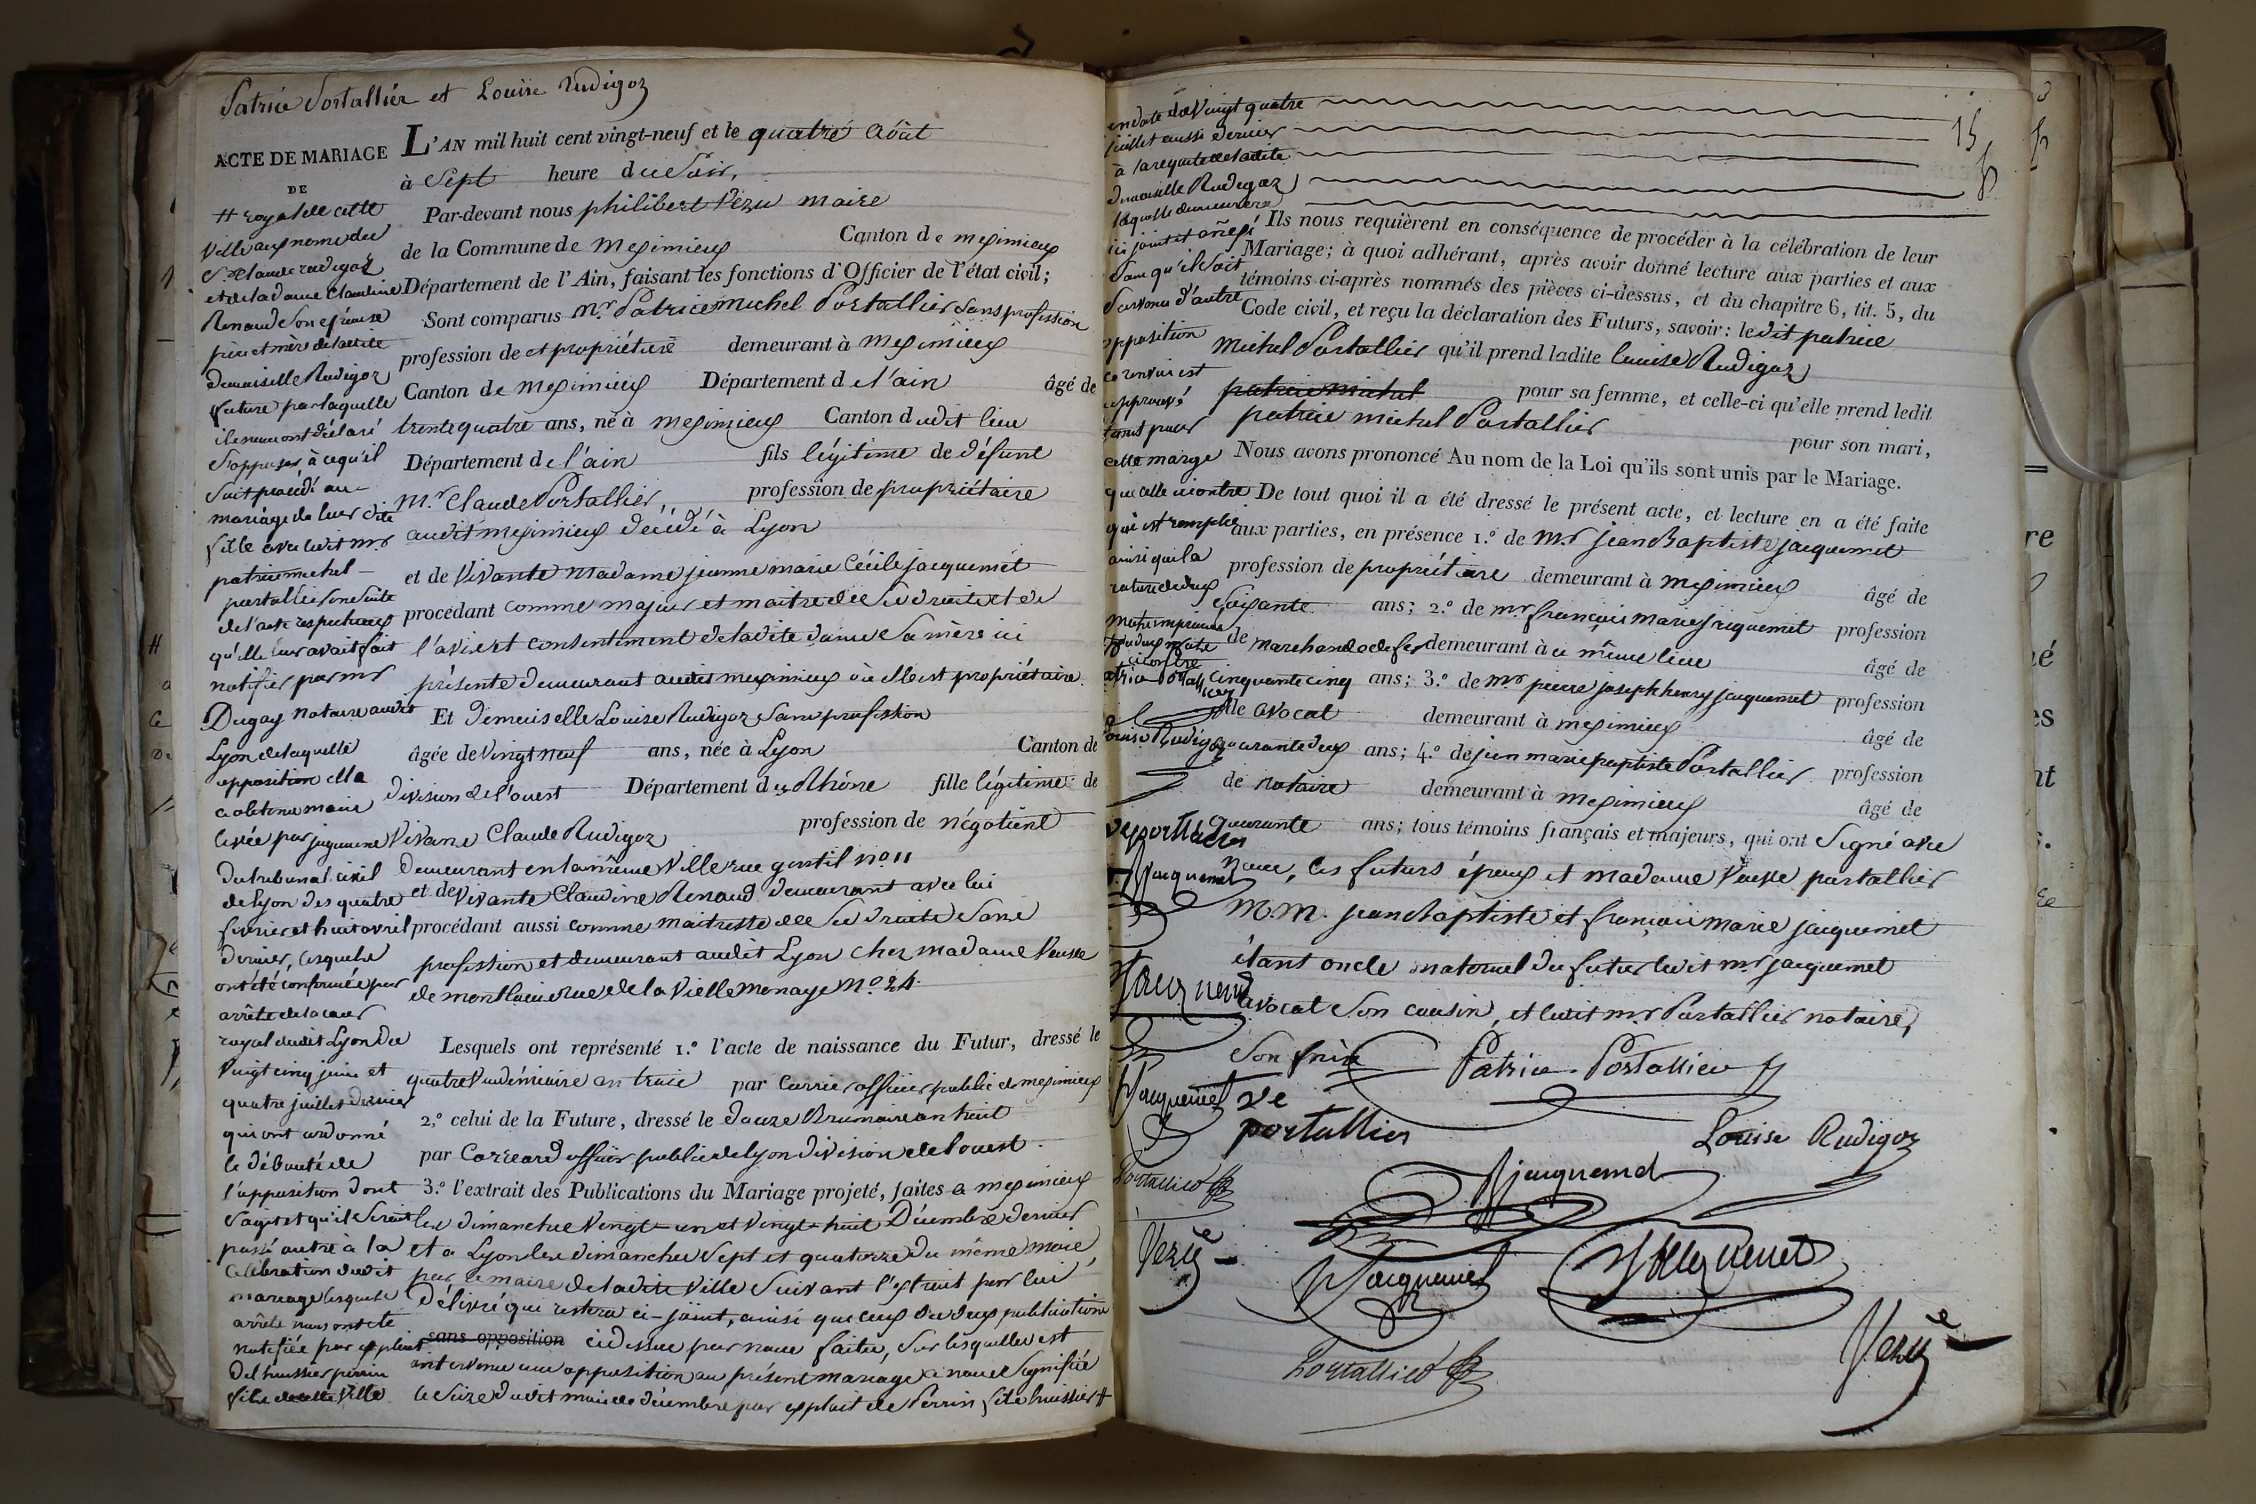 Patrice Portallier et Louise Rudigoz
ACTE DE MARIAGE
DE
L'AN mil huit cent vingt-neuf et le quatre Août
à Sept heure du Soir,
Par-devant nous philibert Vezu maire
de la Commune de Meximieux Canton de meximieux
Département de l'Ain, faisant les fonctions d'Officier de l'état civil;
Sont comparus Mr. Patrice michel Portallier sans profession
profession de et propriétaire demeurant à Meximieux
Canton de meximieux Département de l'ain âgé de
trente quatre ans, né à meximieux Canton dudit lieu
Département de l'ain fils légitime de défunt
Mr. Claude Portallier, profession de propriétaire
audit meximieux décédé à Lyon
et de Vivante Madame jeanne marie Cécile jacquemet
procédant comme majeur et maitre de Ses droits et de
l'avis et consentement de ladite dame Sa mère ici
présente demeurant audit meximieux où elle est propriétaire.
Et Demoiselle Louise Rudigoz Sans profession
âgée de Vingt neuf ans, née à Lyon Canton de
division de l'ouest Département du Rhône fille légitime de
Vivans Claude Rudigoz profession de négotient
demeurant en la même Ville rue gentil no 11
et de Vivante Claudine Renaud demeurant avec lui
procédant aussi comme maitresse de Ses droits Sans
profession et demeurant audit Lyon chez madame Veuve
de montlucie rue de la Vielle Monaye No. 24.
Lesquels ont représenté 1.º l'acte de naissance du Futur, dressé le
quatre Vendémiaire an trois par Carrier officier public de meximieux
2.º celui de la Future, dressé le douze Brumaire an huit
par Carreard officier public de Lyon division de l'ouest.
3.º l'extrait des Publications du Mariage projeté, faites à meximieux
les dimanches Vingt-un et Vingt-huit Décembre dernier
et à Lyon les dimanches Sept et quatorze du même mois,
par le maire de ladite Ville Suivant l'extrait par lui
Délivré qui restera ci-joint, ainsi que ceux des deux publications
sans opposition cidessus par nous faites, Sur lesquelles est
intervenue une opposition au présent mariage à nous Signifiée
le Seize dudit mois de décembre par exploit de Perrin fils huissier #
# royal de cette
Ville aux noms du
Sr. Claude rudigoz
et de la dame Claudine
Renaud Son épouse
père et mère de ladite
demoiselle Rudigoz
future par laquelle
ils nous ont déclaré
S'opposer à ce qu'il
Soit procédé au
mariage de leur dite
fille avec ledit mr
patrice michel
portallier ensuite
de l'acte respectueux
qu'elle leur avait fait
notifier par mr
Dugay Notaire audit
Lyon de laquelle
opposition elle
a obtenu main
levée par jugement
du tribunal civil
de Lyon des quatre
février et huit avril
dernier, lesquels
ont été confirmés par
arrêts de la cour
royal dudit Lyon du
Vingt cinq juin et
quatre juillet dernier
qui ont ordonné
le débouté de
l'opposition dont
S'agit et qu'il Serait
passé outre à la
célébration dudit
mariage lesquels
arrêts nous ont été
notifiés par exploit
de l'huissier perrin
fils de cette Ville
en date du Vingt quatre
juillet aussi dernier
à la requete de ladite
demoiselle Rudigoz
laquelle demeurera
ici joint et annexé
Sans qu'il Soit
Survenu d'autre
opposition
ce renvoi est
approuvé
tant pour
cette marge
que celle icontre
qui est remplie
ainsi que la
rature de deux
mots imprimés
15
Ils nous requièrent en conséquence de procéder à la célébration de leur
Mariage; à quoi adhérant, après avoir donné lecture aux parties et aux
témoins ci-après nommés des pièces ci-dessus, et du chapitre 6, tit. 5, du
Code civil, et reçu la déclaration des Futurs, savoir: ledit patrice
Michel Portallier qu'il prend ladite louise Rudigoz
patrice michel pour sa femme, et celle-ci qu'elle prend ledit
patrice michel Portallier pour son mari,
Nous avons prononcé Au nom de la Loi qu'ils sont unis par le Mariage.
De tout quoi il a été dressé le présent acte, et lecture en a été faite
aux parties, en présence 1.º de Mr jean Baptiste jacquemet
profession de propriétaire demeurant à meximieux âgé de
soixante ans; 2.º de mr françois marie jacquemet profession
de marchand de fer demeurant à ce même lieu âgé de
cinquante cinq ans; 3.º de Mr pierre joseph henry jacquemet profession
de avocat demeurant à meximieux âgé de
quarante deux ans; 4.º de jean marie baptiste Portallier profession
de notaire demeurant à meximieux âgé de
quarante ans; tous témoins français et majeurs, qui ont Signé avec
nous, les futurs époux et madame Veuve portallier
M.M. jean Baptiste et françois marie jacquemet
étant oncle maternel du futur ledit mr jacquemet
avocat Son cousin, et ledit mr Portallier notaire,
Son frère
Patrice Portallier
Ve portallier
Louise Rudigoz
Jacquemet
Jacquemet
Jacquemet
Portallier
Vezu
Louise Rudigoz
ve portallier
Jacquemet
Jacquemet
Jacquemet
Portallier
Vezu